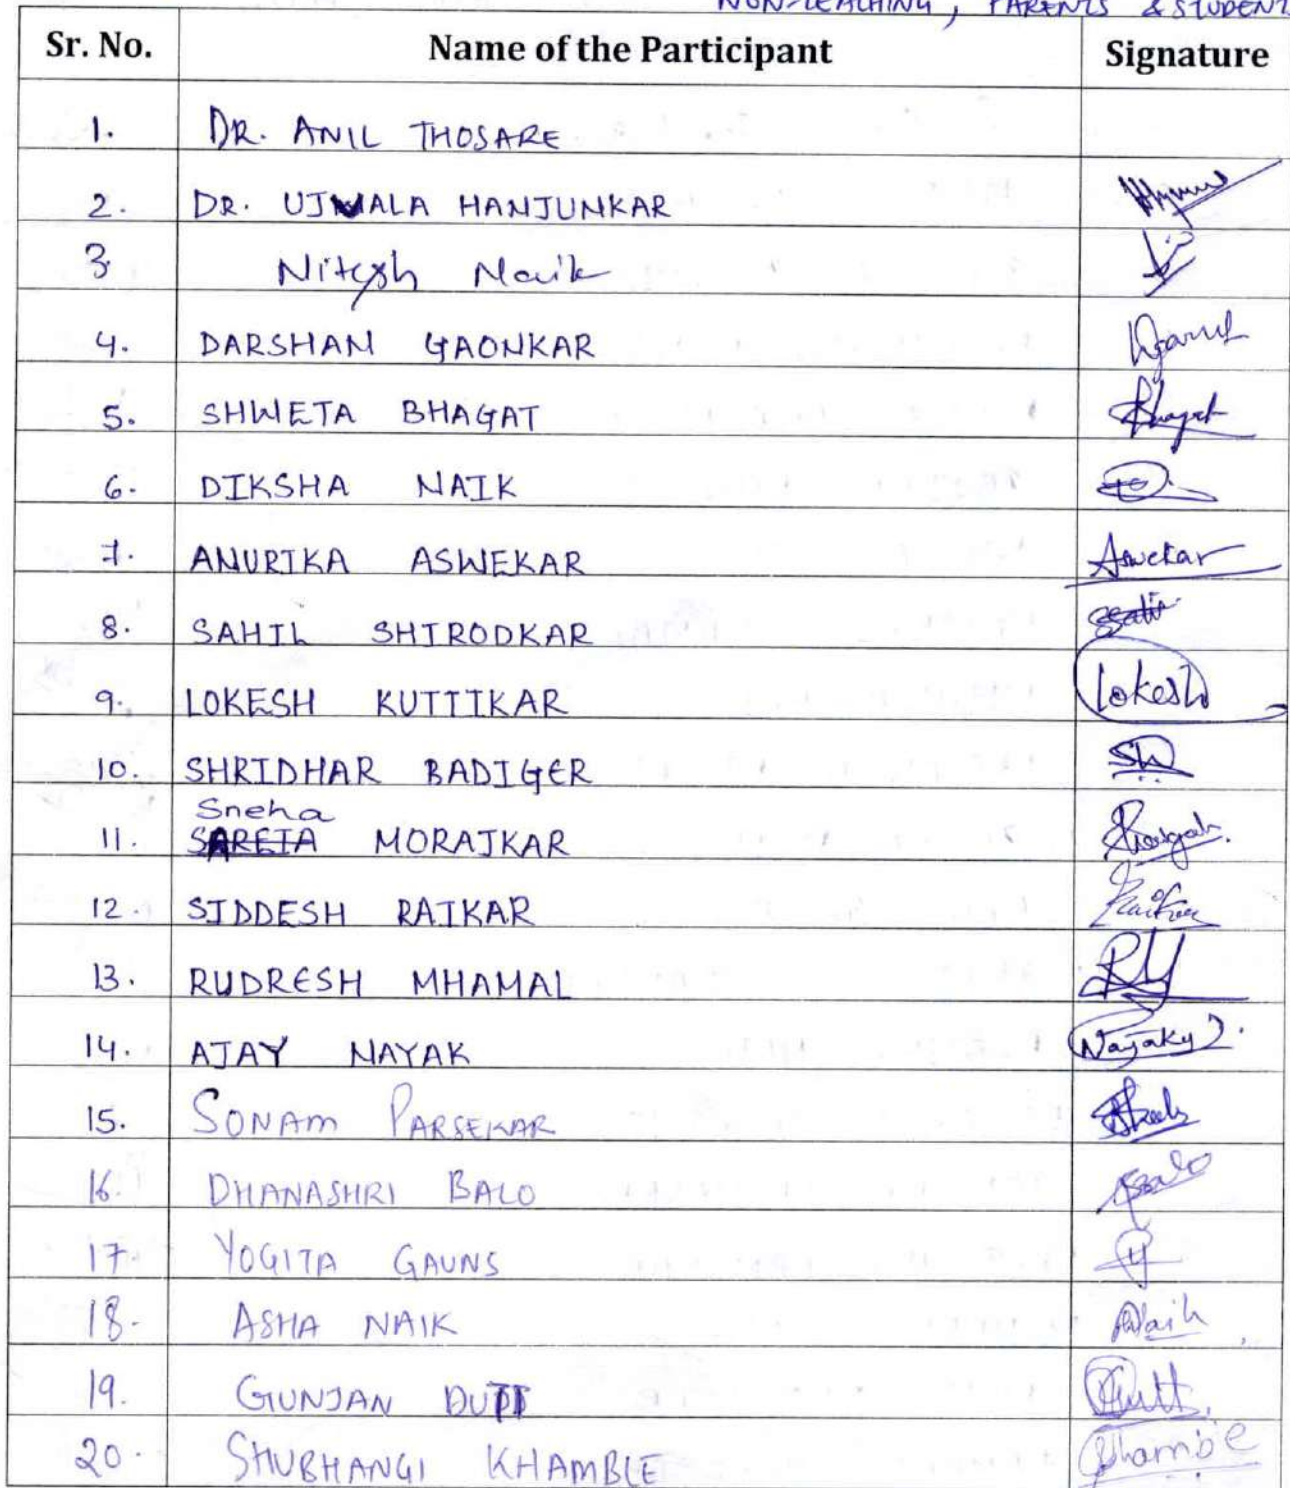 NON-TEACHING, PARENTS & STUDENT
Sr. No. Name of the Participant Signature
1. DR. ANIL THOSARE
2. DR. UJWALA HANJUNKAR
3 Nitesh Naik
4. DARSHAN GAONKAR
5. SHWETA BHAGAT Bhagat
6. DIKSHA NAIK
7. ANURIKA ASWEKAR Aswekar
8. SAHIL SHIRODKAR
9. LOKESH KUTTIKAR lokesh
10. SHRIDHAR BADIGER Sh
Sneha
11. SARETA MORAJKAR
12. SIDDESH RAIKAR
13. RUDRESH MHAMAL RY
14. AJAY NAYAK Nayak
15. SONAM PARSEKAR
16. DHANASHRI BALO
17. YOGITA GAUNS Y
18. ASHA NAIK Naik
19. GUNJAN DUTT Dutt
20. SHUBHANGI KHAMBLE